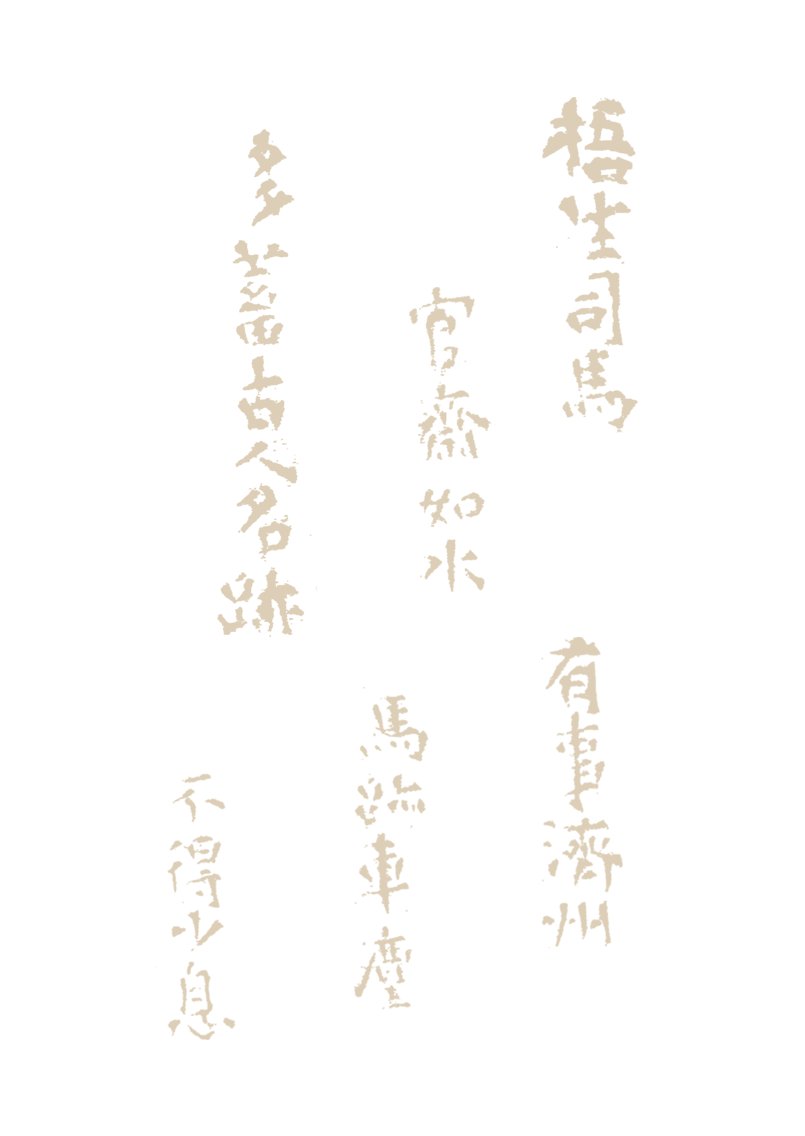 梧生司馬
有事濟州
官齋如水
馬跡車塵
多蓄古人名跡
不得少息